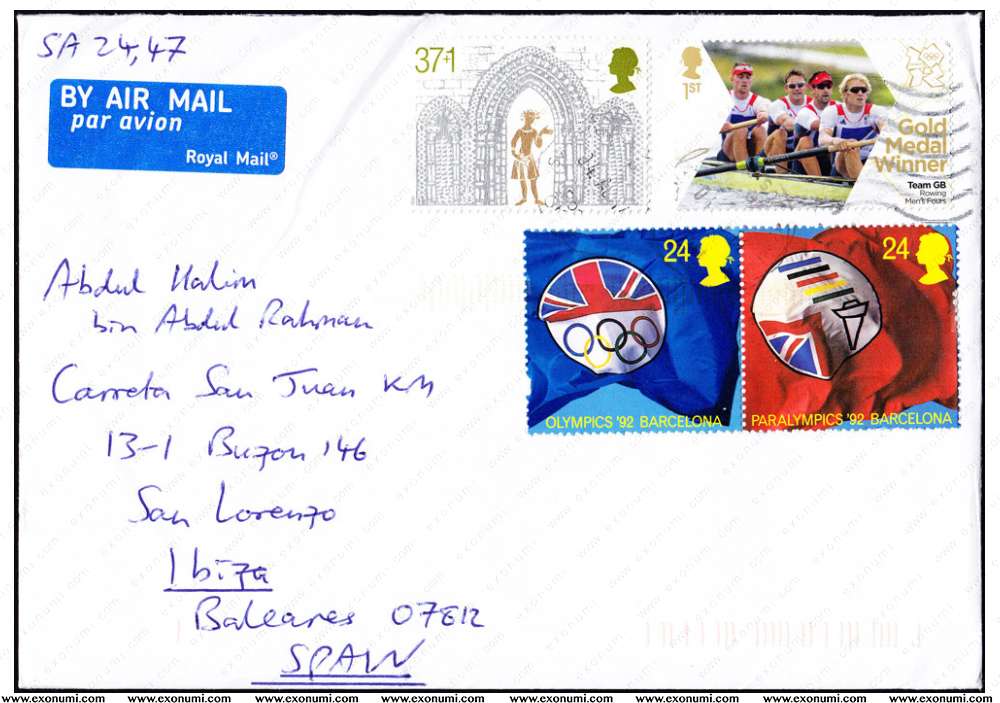 SA 24,47
BY AIR MAIL
par avion
Royal Mail®
37+1
1ST
Gold
Medal
Winner
Team GB
Rowing
Men's Fours
24
OLYMPICS '92 BARCELONA
24
PARALYMPICS '92 BARCELONA
Abdul Halim
bin Abdul Rahman
Carreta San Juan KM
13-1 Buzon 146
San Lorenzo
Ibiza
Baleares 07812
SPAIN
www.exonumi.com www.exonumi.com www.exonumi.com www.exonumi.com www.exonumi.com www.exonumi.com www.exonumi.com www.exonumi.com